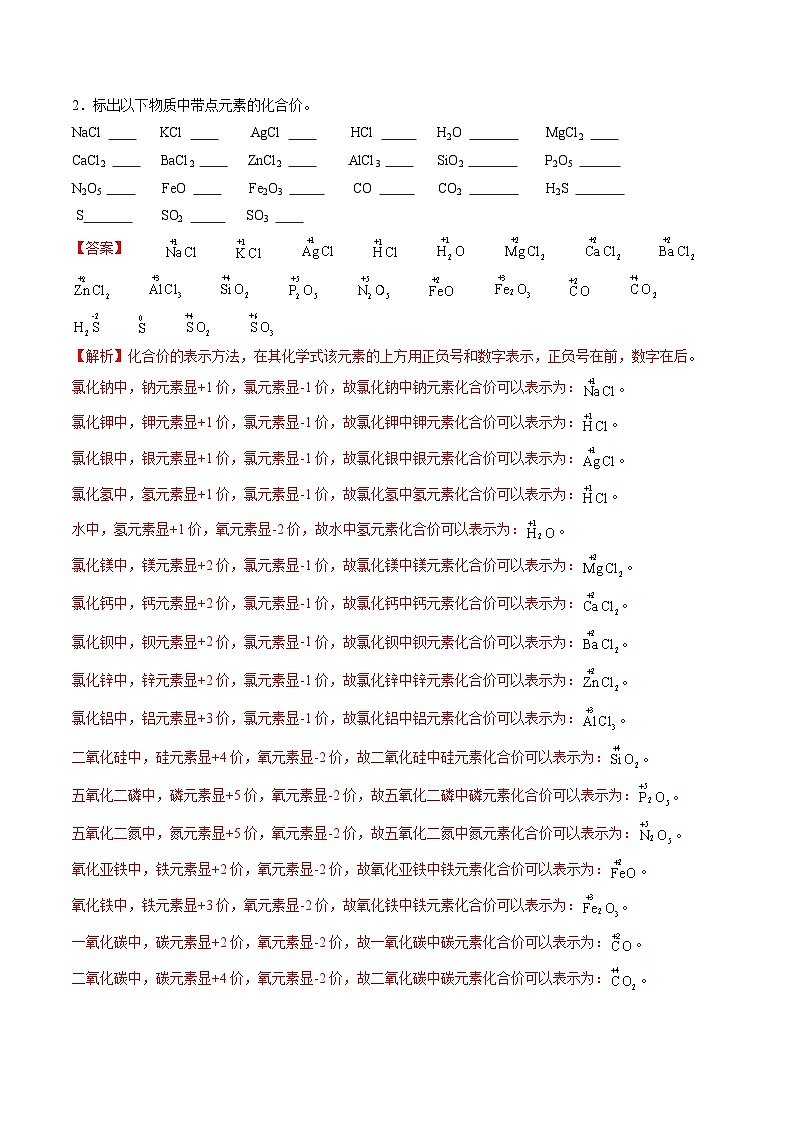 2．标出以下物质中带点元素的化合价。
NaCl ____ KCl ____ AgCl ____ HCl _____ H₂O _______ MgCl₂ ____
CaCl₂ ____ BaCl₂ ____ ZnCl₂ ____ AlCl₃ ____ SiO₂ _______ P₂O₅ ______
N₂O₅ ____ FeO ____ Fe₂O₃ _____ CO _____ CO₂ _______ H₂S _______
S_______ SO₂ _____ SO₃ ____
+1 +1 +1 +1 +1 +2 +2 +2
【答案】 NaCl KCl AgCl HCl H₂O MgCl₂ CaCl₂ BaCl₂
+2 +3 +4 +5 +5 +2 +3 +2 +4
ZnCl₂ AlCl₃ SiO₂ P₂O₅ N₂O₅ FeO Fe₂O₃ CO CO₂
-2 0 +4 +6
H₂S S SO₂ SO₃
【解析】化合价的表示方法，在其化学式该元素的上方用正负号和数字表示，正负号在前，数字在后。
+1
氯化钠中，钠元素显+1价，氯元素显-1价，故氯化钠中钠元素化合价可以表示为：NaCl。
+1
氯化钾中，钾元素显+1价，氯元素显-1价，故氯化钾中钾元素化合价可以表示为：HCl。
+1
氯化银中，银元素显+1价，氯元素显-1价，故氯化银中银元素化合价可以表示为：AgCl。
+1
氯化氢中，氢元素显+1价，氯元素显-1价，故氯化氢中氢元素化合价可以表示为：HCl。
+1
水中，氢元素显+1价，氧元素显-2价，故水中氢元素化合价可以表示为：H₂O。
+2
氯化镁中，镁元素显+2价，氯元素显-1价，故氯化镁中镁元素化合价可以表示为：MgCl₂。
+2
氯化钙中，钙元素显+2价，氯元素显-1价，故氯化钙中钙元素化合价可以表示为：CaCl₂。
+2
氯化钡中，钡元素显+2价，氯元素显-1价，故氯化钡中钡元素化合价可以表示为：BaCl₂。
+2
氯化锌中，锌元素显+2价，氯元素显-1价，故氯化锌中锌元素化合价可以表示为：ZnCl₂。
+3
氯化铝中，铝元素显+3价，氯元素显-1价，故氯化铝中铝元素化合价可以表示为：AlCl₃。
+4
二氧化硅中，硅元素显+4价，氧元素显-2价，故二氧化硅中硅元素化合价可以表示为：SiO₂。
+5
五氧化二磷中，磷元素显+5价，氧元素显-2价，故五氧化二磷中磷元素化合价可以表示为：P₂O₅。
+5
五氧化二氮中，氮元素显+5价，氧元素显-2价，故五氧化二氮中氮元素化合价可以表示为：N₂O₅。
+2
氧化亚铁中，铁元素显+2价，氧元素显-2价，故氧化亚铁中铁元素化合价可以表示为：FeO。
+3
氧化铁中，铁元素显+3价，氧元素显-2价，故氧化铁中铁元素化合价可以表示为：Fe₂O₃。
+2
一氧化碳中，碳元素显+2价，氧元素显-2价，故一氧化碳中碳元素化合价可以表示为：CO。
+4
二氧化碳中，碳元素显+4价，氧元素显-2价，故二氧化碳中碳元素化合价可以表示为：CO₂。